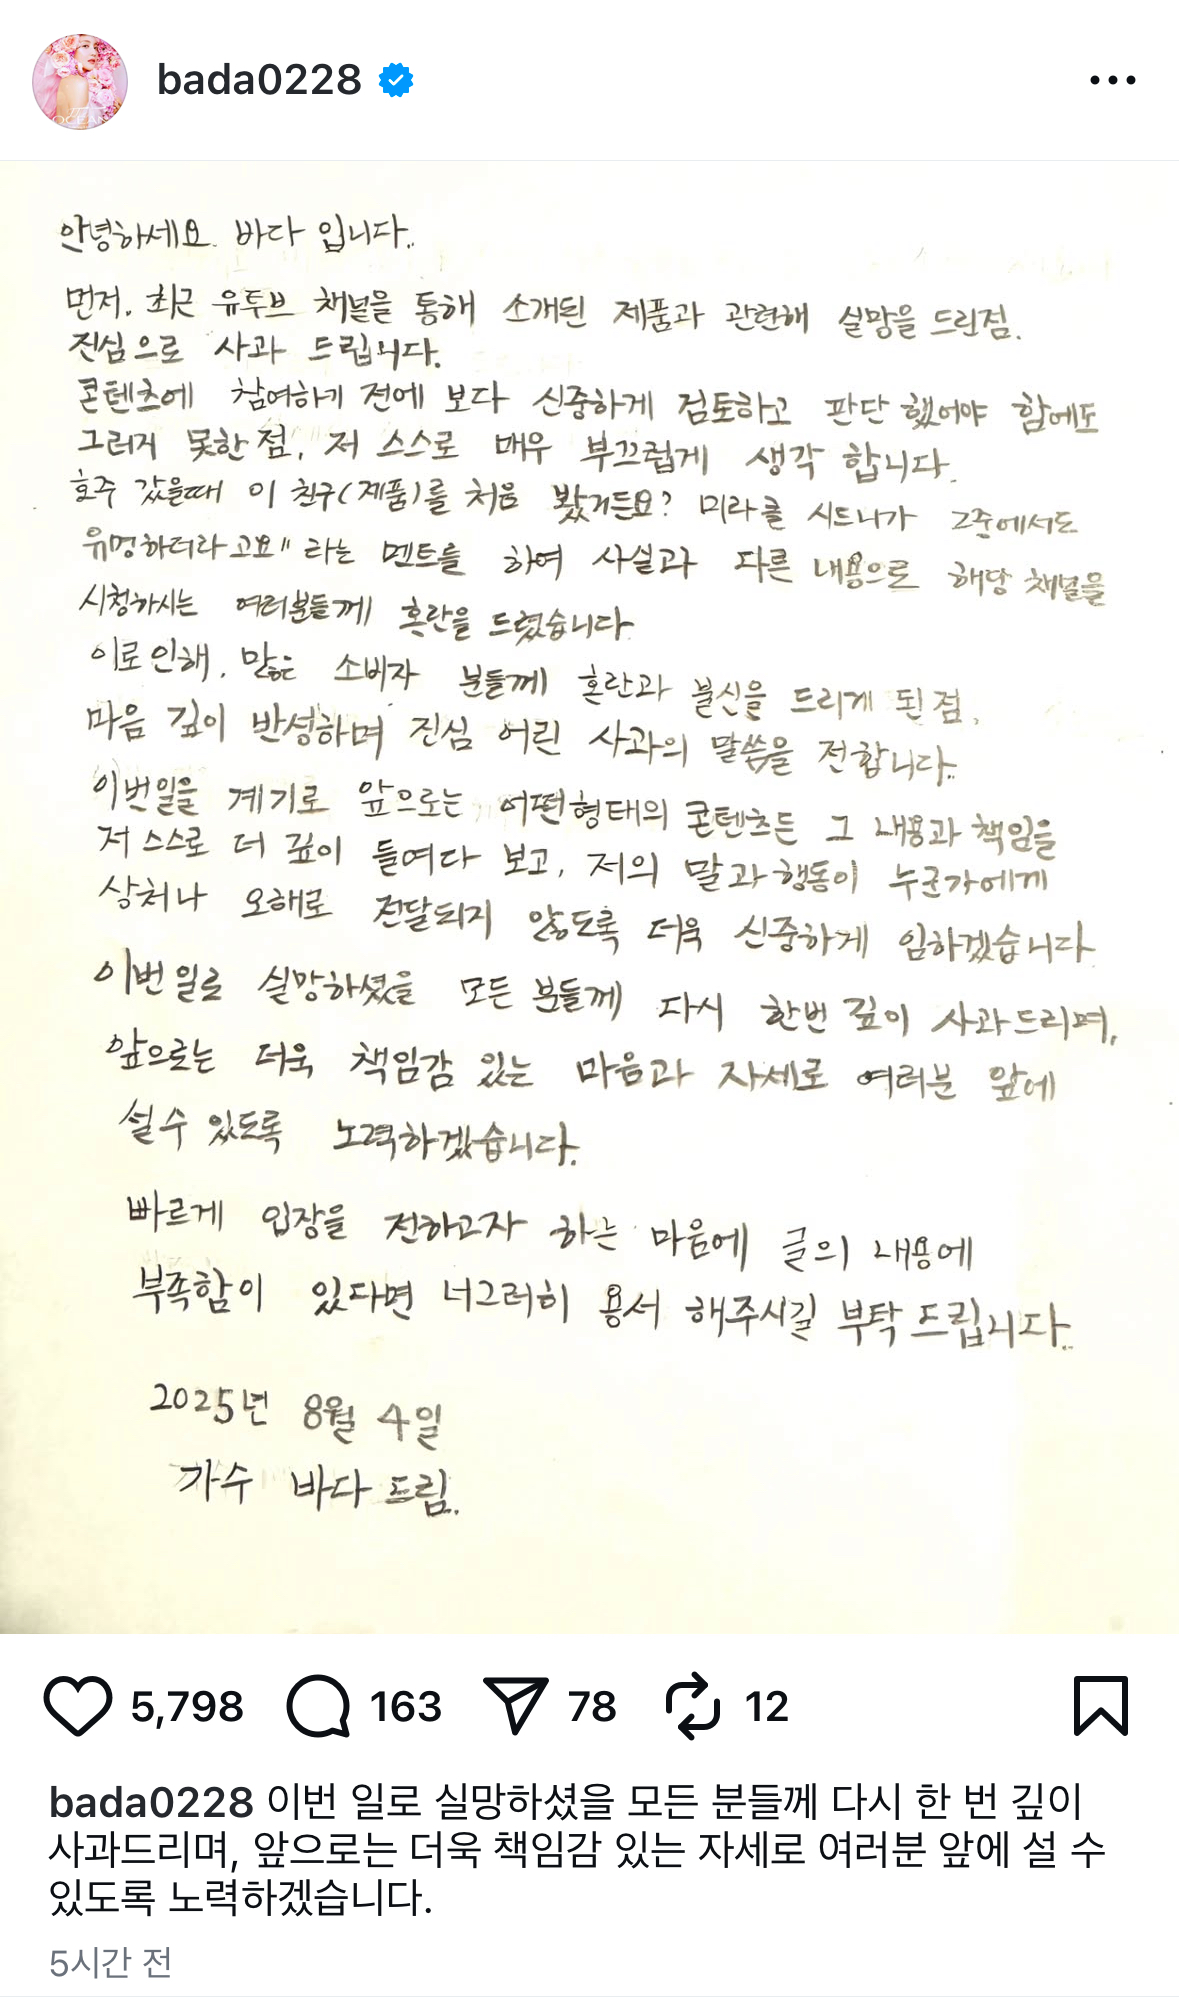 bada0228
안녕하세요. 바다 입니다..
먼저, 최근 유투브 채널을 통해 소개된 제품과 관련해 실망을 드린점.
진심으로 사과 드립니다.
콘텐츠에 참여하기 전에 보다 신중하게 검토하고 판단 했어야 함에도
그러지 못한 점, 저 스스로 매우 부끄럽게 생각 합니다.
호주 갔을때 이 친구(제품)를 처음 봤거든요? 미라클 시드니가 그중에서도
유명하더라고요" 라는 멘트를 하여 사실과 다른 내용으로 해당 채널을
시청하시는 여러분들께 혼란을 드렸습니다.
이로인해, 많은 소비자 분들께 혼란과 불신을 드리게 된 점,
마음 깊이 반성하며 진심 어린 사과의 말씀을 전합니다..
이번일을 계기로 앞으로는 어떤형태의 콘텐츠든 그 내용과 책임을
저 스스로 더 깊이 들여다 보고, 저의 말과 행동이 누군가에게
상처나 오해로 전달되지 않도록 더욱 신중하게 임하겠습니다.
이번 일로 실망하셨을 모든 분들께 다시 한번 깊이 사과드리며,
앞으로는 더욱 책임감 있는 마음과 자세로 여러분 앞에
설수 있도록 노력하겠습니다.
빠르게 입장을 전하고자 하는 마음에 글의 내용에
부족함이 있다면 너그러히 용서 해주시길 부탁 드립니다..
2025년 8월 4일
가수 바다 드림.
5,798 163 78 12
bada0228 이번 일로 실망하셨을 모든 분들께 다시 한 번 깊이
사과드리며, 앞으로는 더욱 책임감 있는 자세로 여러분 앞에 설 수
있도록 노력하겠습니다.
5시간 전